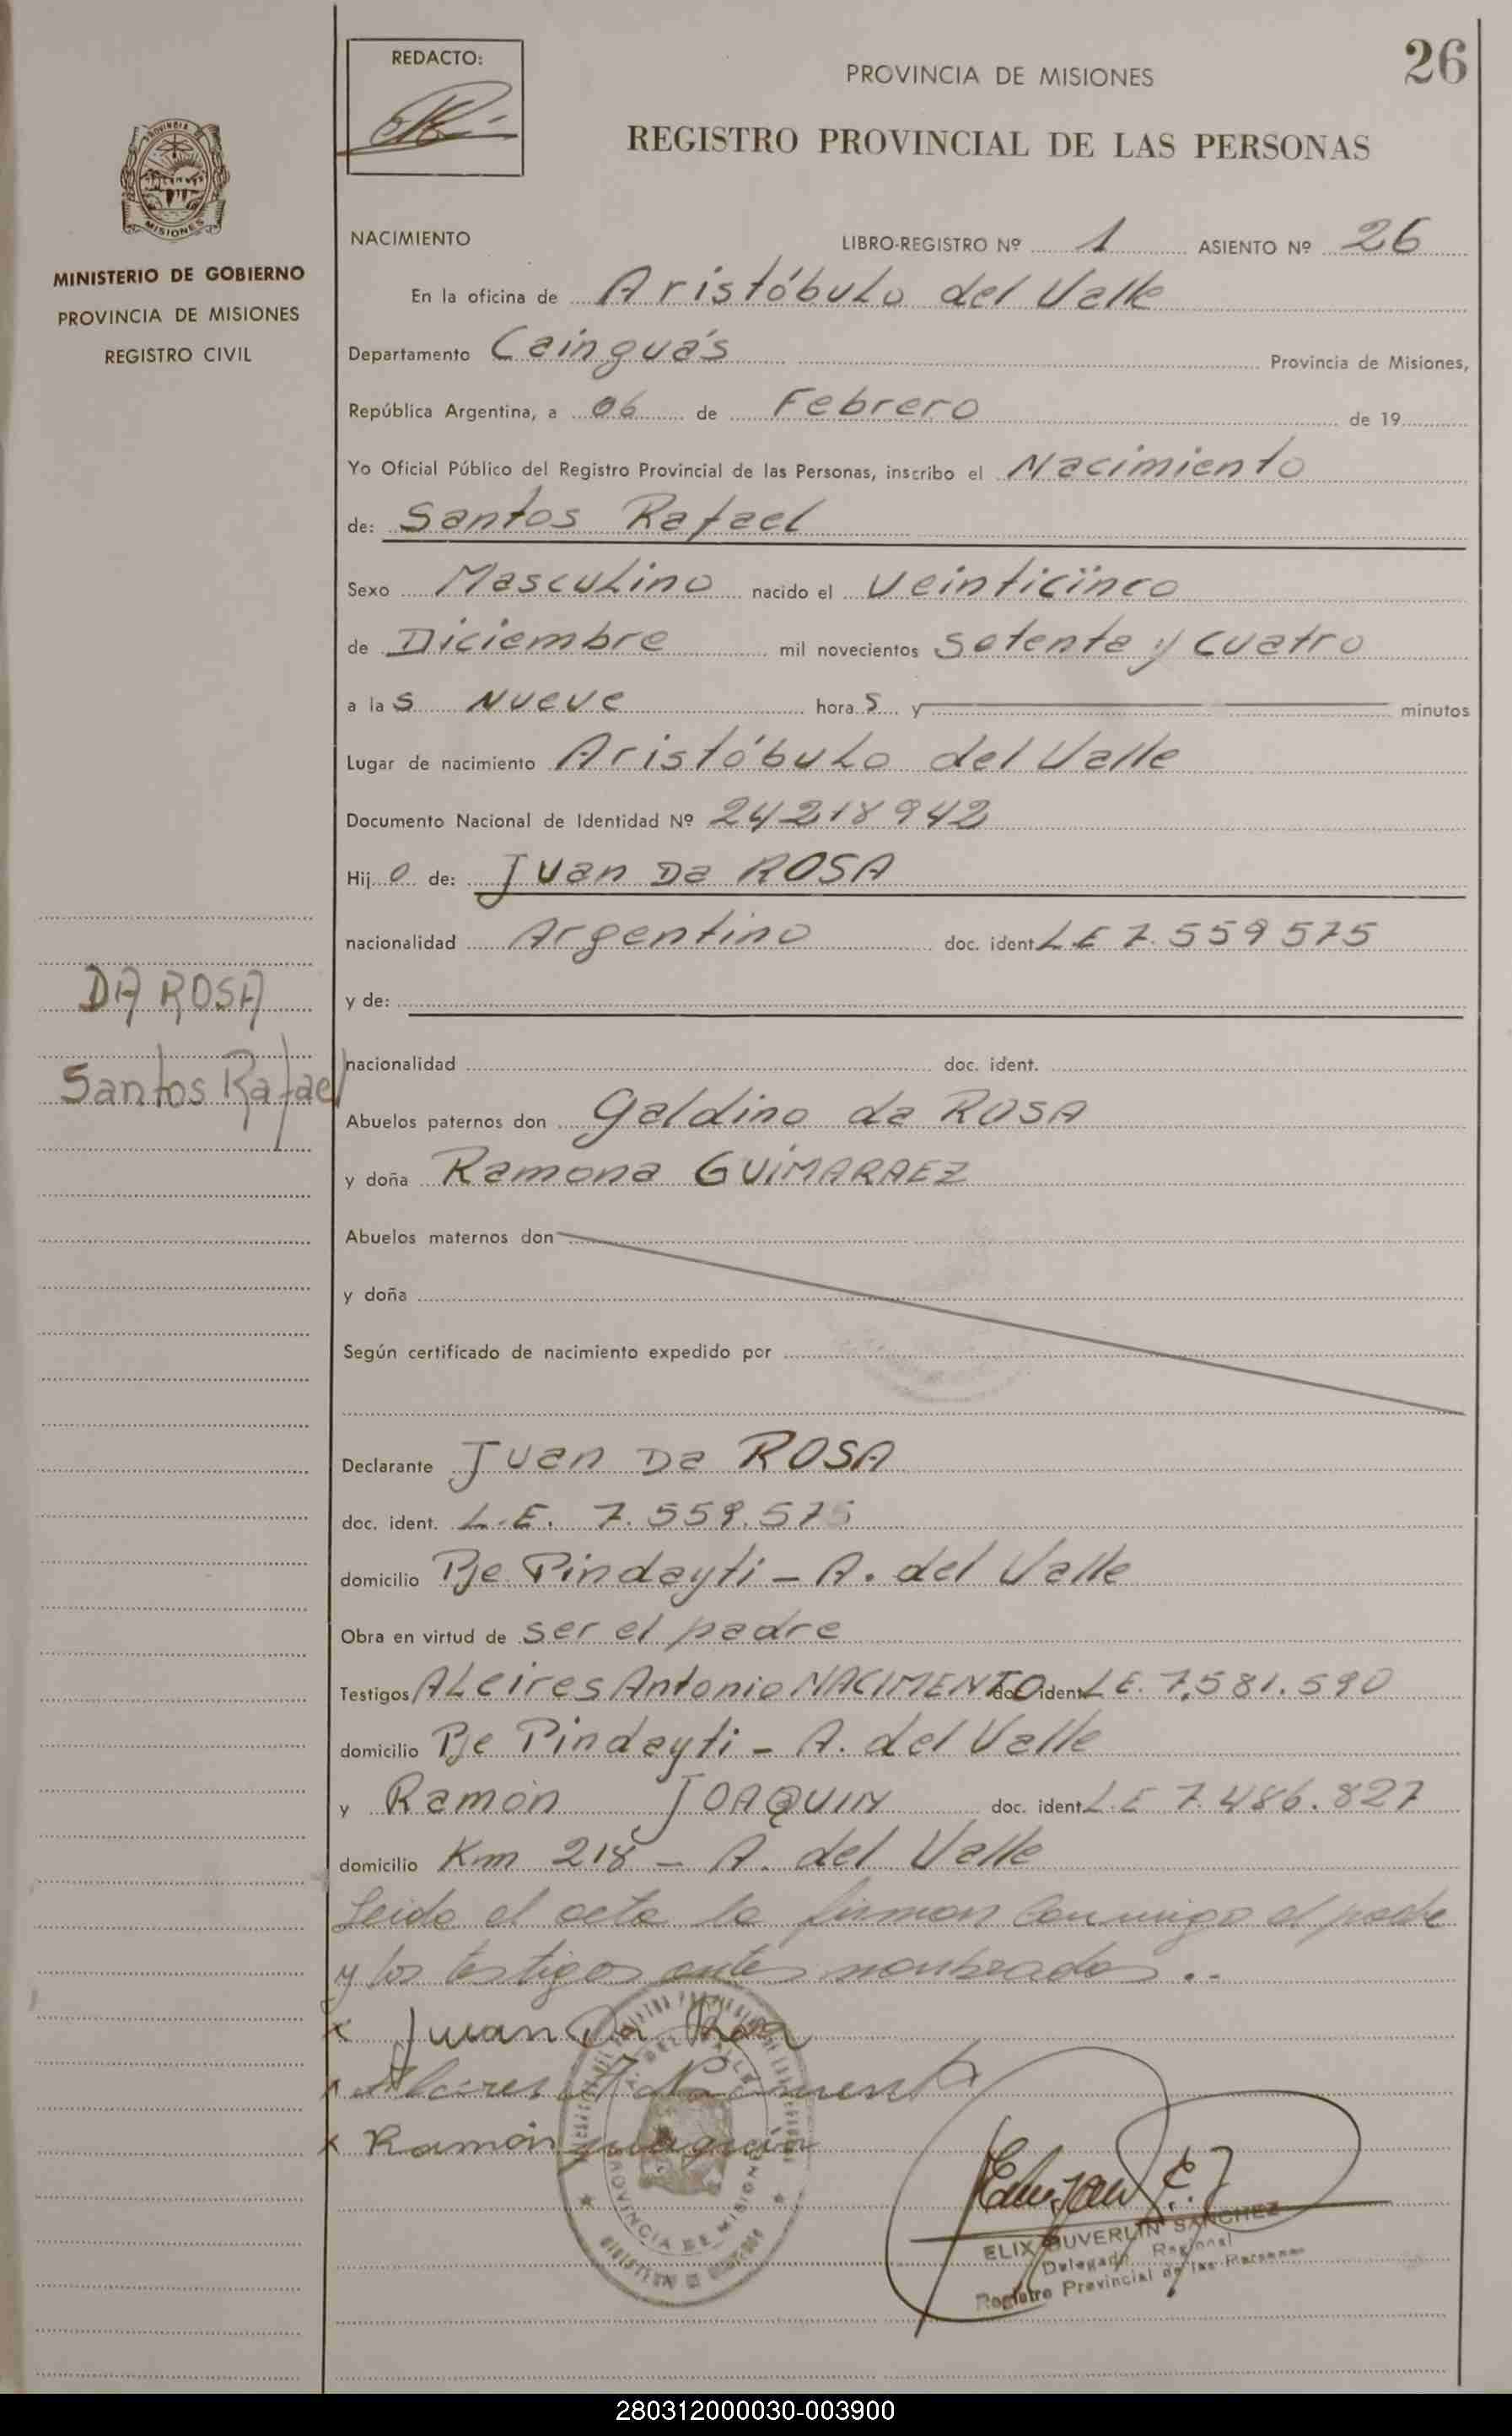 26
REDACTO:
PROVINCIA DE MISIONES
REGISTRO PROVINCIAL DE LAS PERSONAS
MISIONES
MINISTERIO DE GOBIERNO
PROVINCIA DE MISIONES
REGISTRO CIVIL
NACIMIENTO LIBRO-REGISTRO Nº 1 ASIENTO Nº 26
En la oficina de Aristóbulo del Valle
Departamento Cainguás Provincia de Misiones,
República Argentina, a 06 de Febrero de 19
Yo Oficial Público del Registro Provincial de las Personas, inscribo el Nacimiento
de: Santos Rafael
Sexo Masculino nacido el veinticinco
de Diciembre mil novecientos setenta y cuatro
a las Nueve horas y minutos
Lugar de nacimiento Aristóbulo del Valle
Documento Nacional de Identidad Nº 24218942
Hijo de: Juan Da ROSA
nacionalidad Argentino doc. ident. L.E 7.559575
y de:
DA ROSA
Santos Rafael
nacionalidad doc. ident.
Abuelos paternos don Galdino da ROSA
y doña Ramona GUIMARAEZ
Abuelos maternos don
y doña
Según certificado de nacimiento expedido por
Declarante Juan Da ROSA
doc. ident. L.E. 7.559.575
domicilio Pje Pindayti - A. del Valle
Obra en virtud de ser el padre
Testigos ALcires Antonio NACIMENTO doc. ident. L E. 7.581.590
domicilio Pje Pindayti - A. del Valle
y Ramón JOAQUIN doc. ident. L.E 7.486.827
domicilio Km 218 - A. del Valle
Leida el acta la firman conmigo el padre
y los testigos antes nombrados.-
x Juan Da Rosa
x Alcires A Naciment
x Ramon Joaquin
A. DEL VALLE
PROVINCIA DE MISIONES
ELIX DUVERLIN SANCHEZ
Delegado Regional
Registro Provincial de las Personas
280312000030-003900